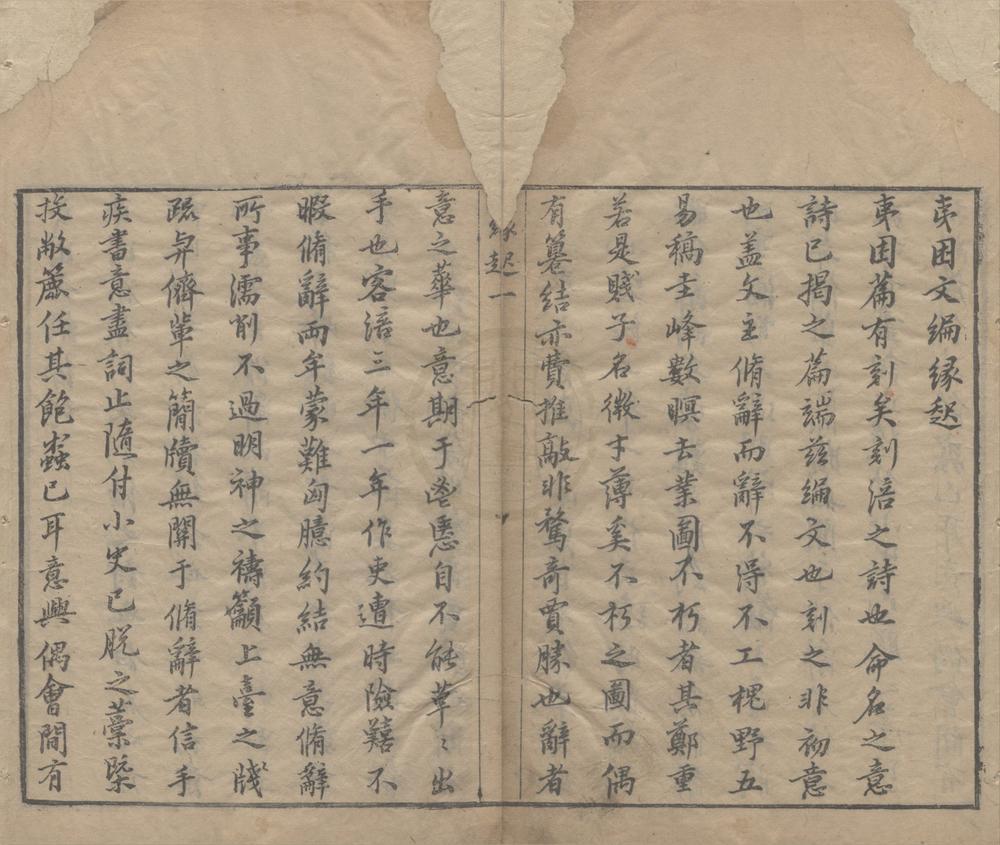 夷困文編緣起
夷困篇有刻矣刻涪之詩也命名之意
詩已揭之篇端茲編文也刻之非初意
也蓋文主脩辭而辭不得不工槐野五
易稿圭峰數瞑去業圖不朽者其鄭重
若是賤子名微才薄奚不朽之圖而偶
有纂結亦費推敲非騖奇賈勝也辭者
緣起一
意之華也意期于鬯慁自不能草〻出
手也客涪三年一年作吏遭時險囏不
暇脩辭兩年蒙難匈臆約結無意脩辭
所事濡削不過明神之禱籲上臺之牋
疏與儕輩之簡牘無關于脩辭者信手
疾書意盡詞止隨付小史已脫之藁槩
投敝簏任其飽蠹已耳意興偶會間有